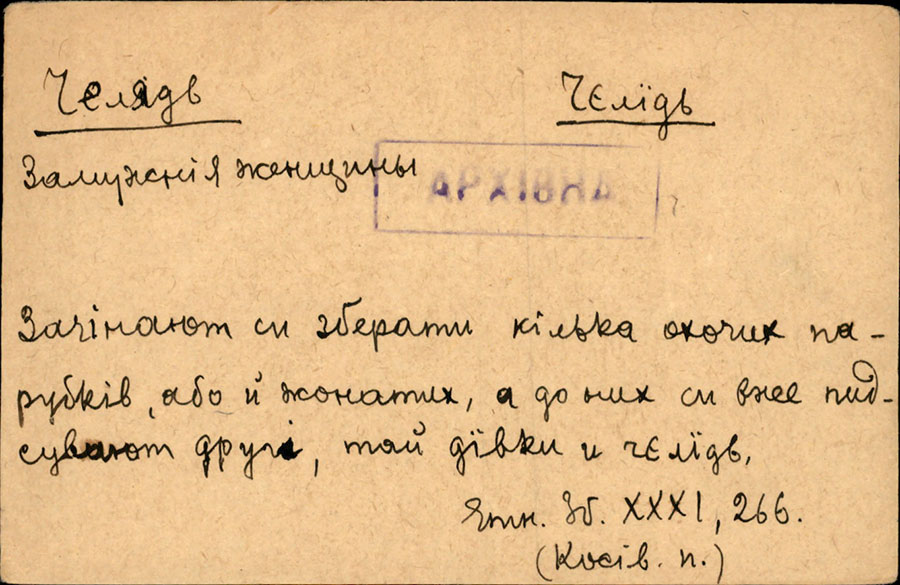 Челядь Чєлїдь
Замужнія женщины
АРХІВНА
Зачінают си зберати кілька охочих па-
рубків, або й жонатих, а до них си вже пид-
сувают другі, тай дївки и чєлїдь.
Етн. Зб. XXXI, 266.
(Косів. п.)